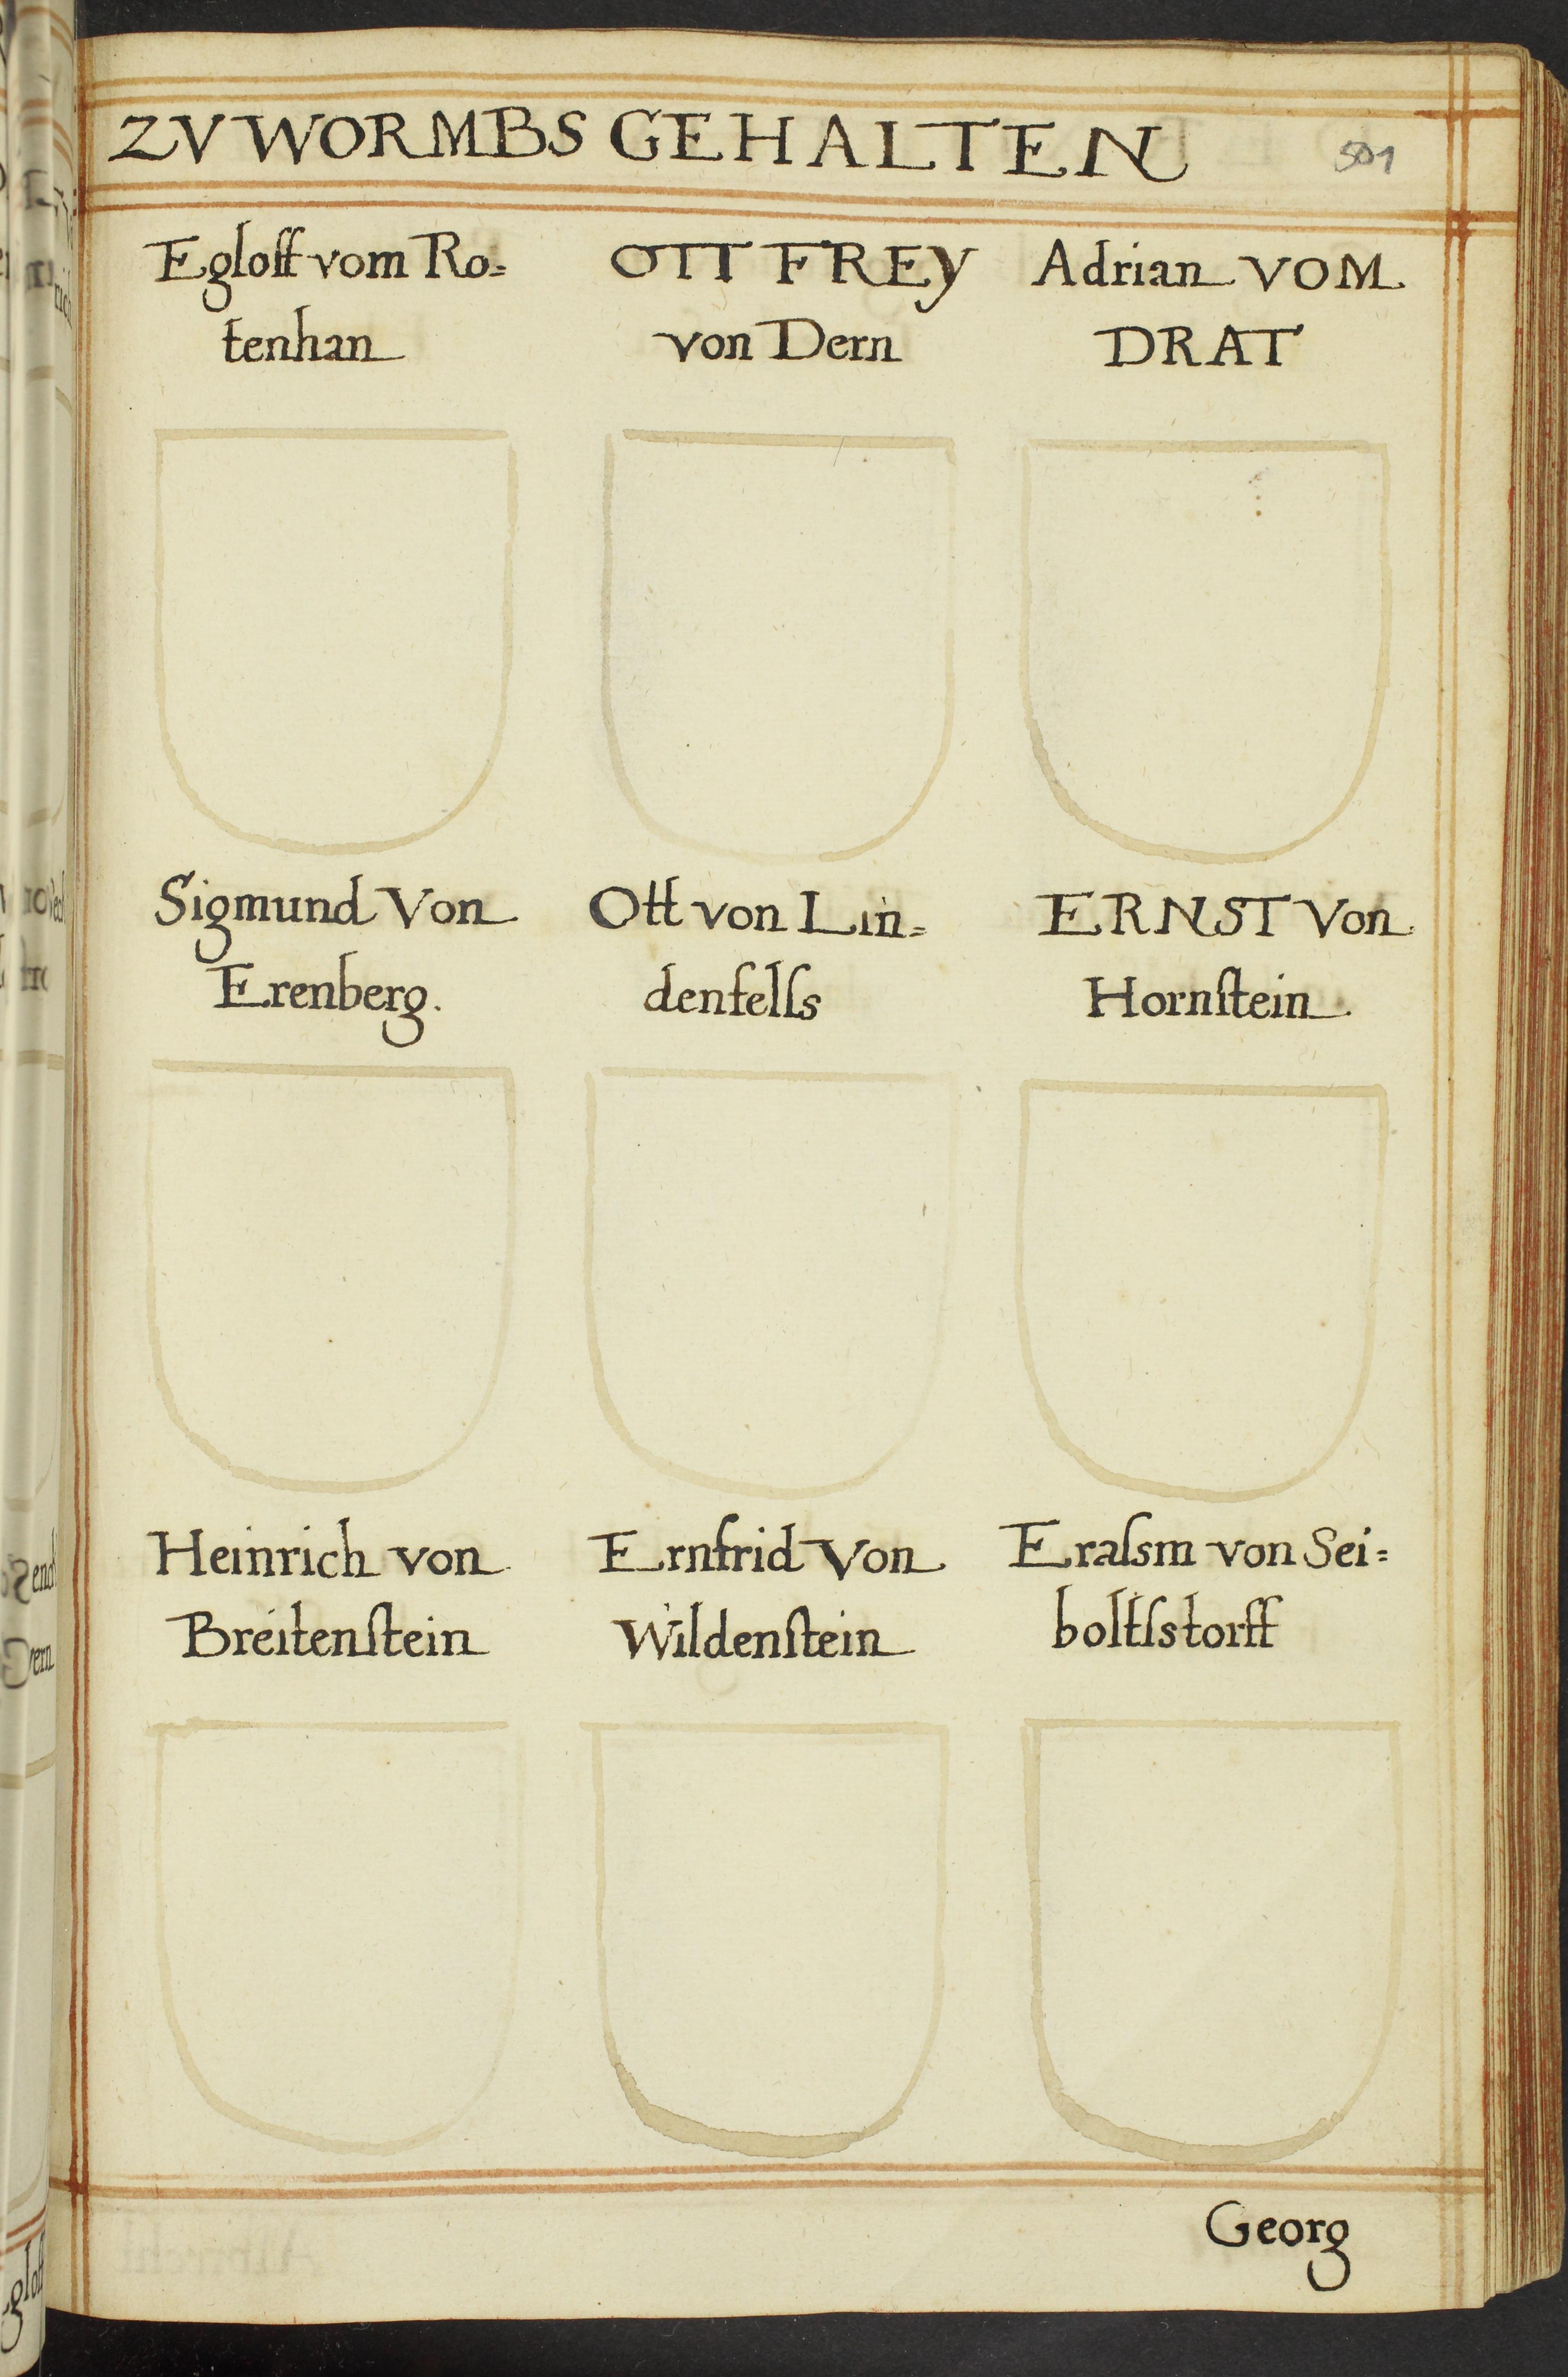 ZV WORMBS GEHALTEN
501
Egloff vom Ro=
tenhan
OTT FREY
von Dern
Adrian VOM
DRAT
Sigmund Von
Erenberg.
Ott von Lin=
denfelſs
ERNST Von
Hornſtein
Heinrich von
Breitenſtein
Ernfrid Von
Wildenſtein
Eraſsm von Sei=
boltſstorff
Georg